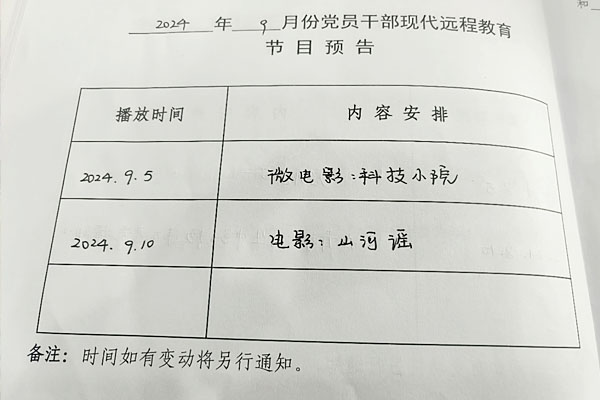 2024 年 9 月份党员干部现代远程教育
节目预告
播放时间 内容安排
2024.9.5 微电影:科技小院
2024.9.10 电影:山河谣
备注: 时间如有变动将另行通知。
和